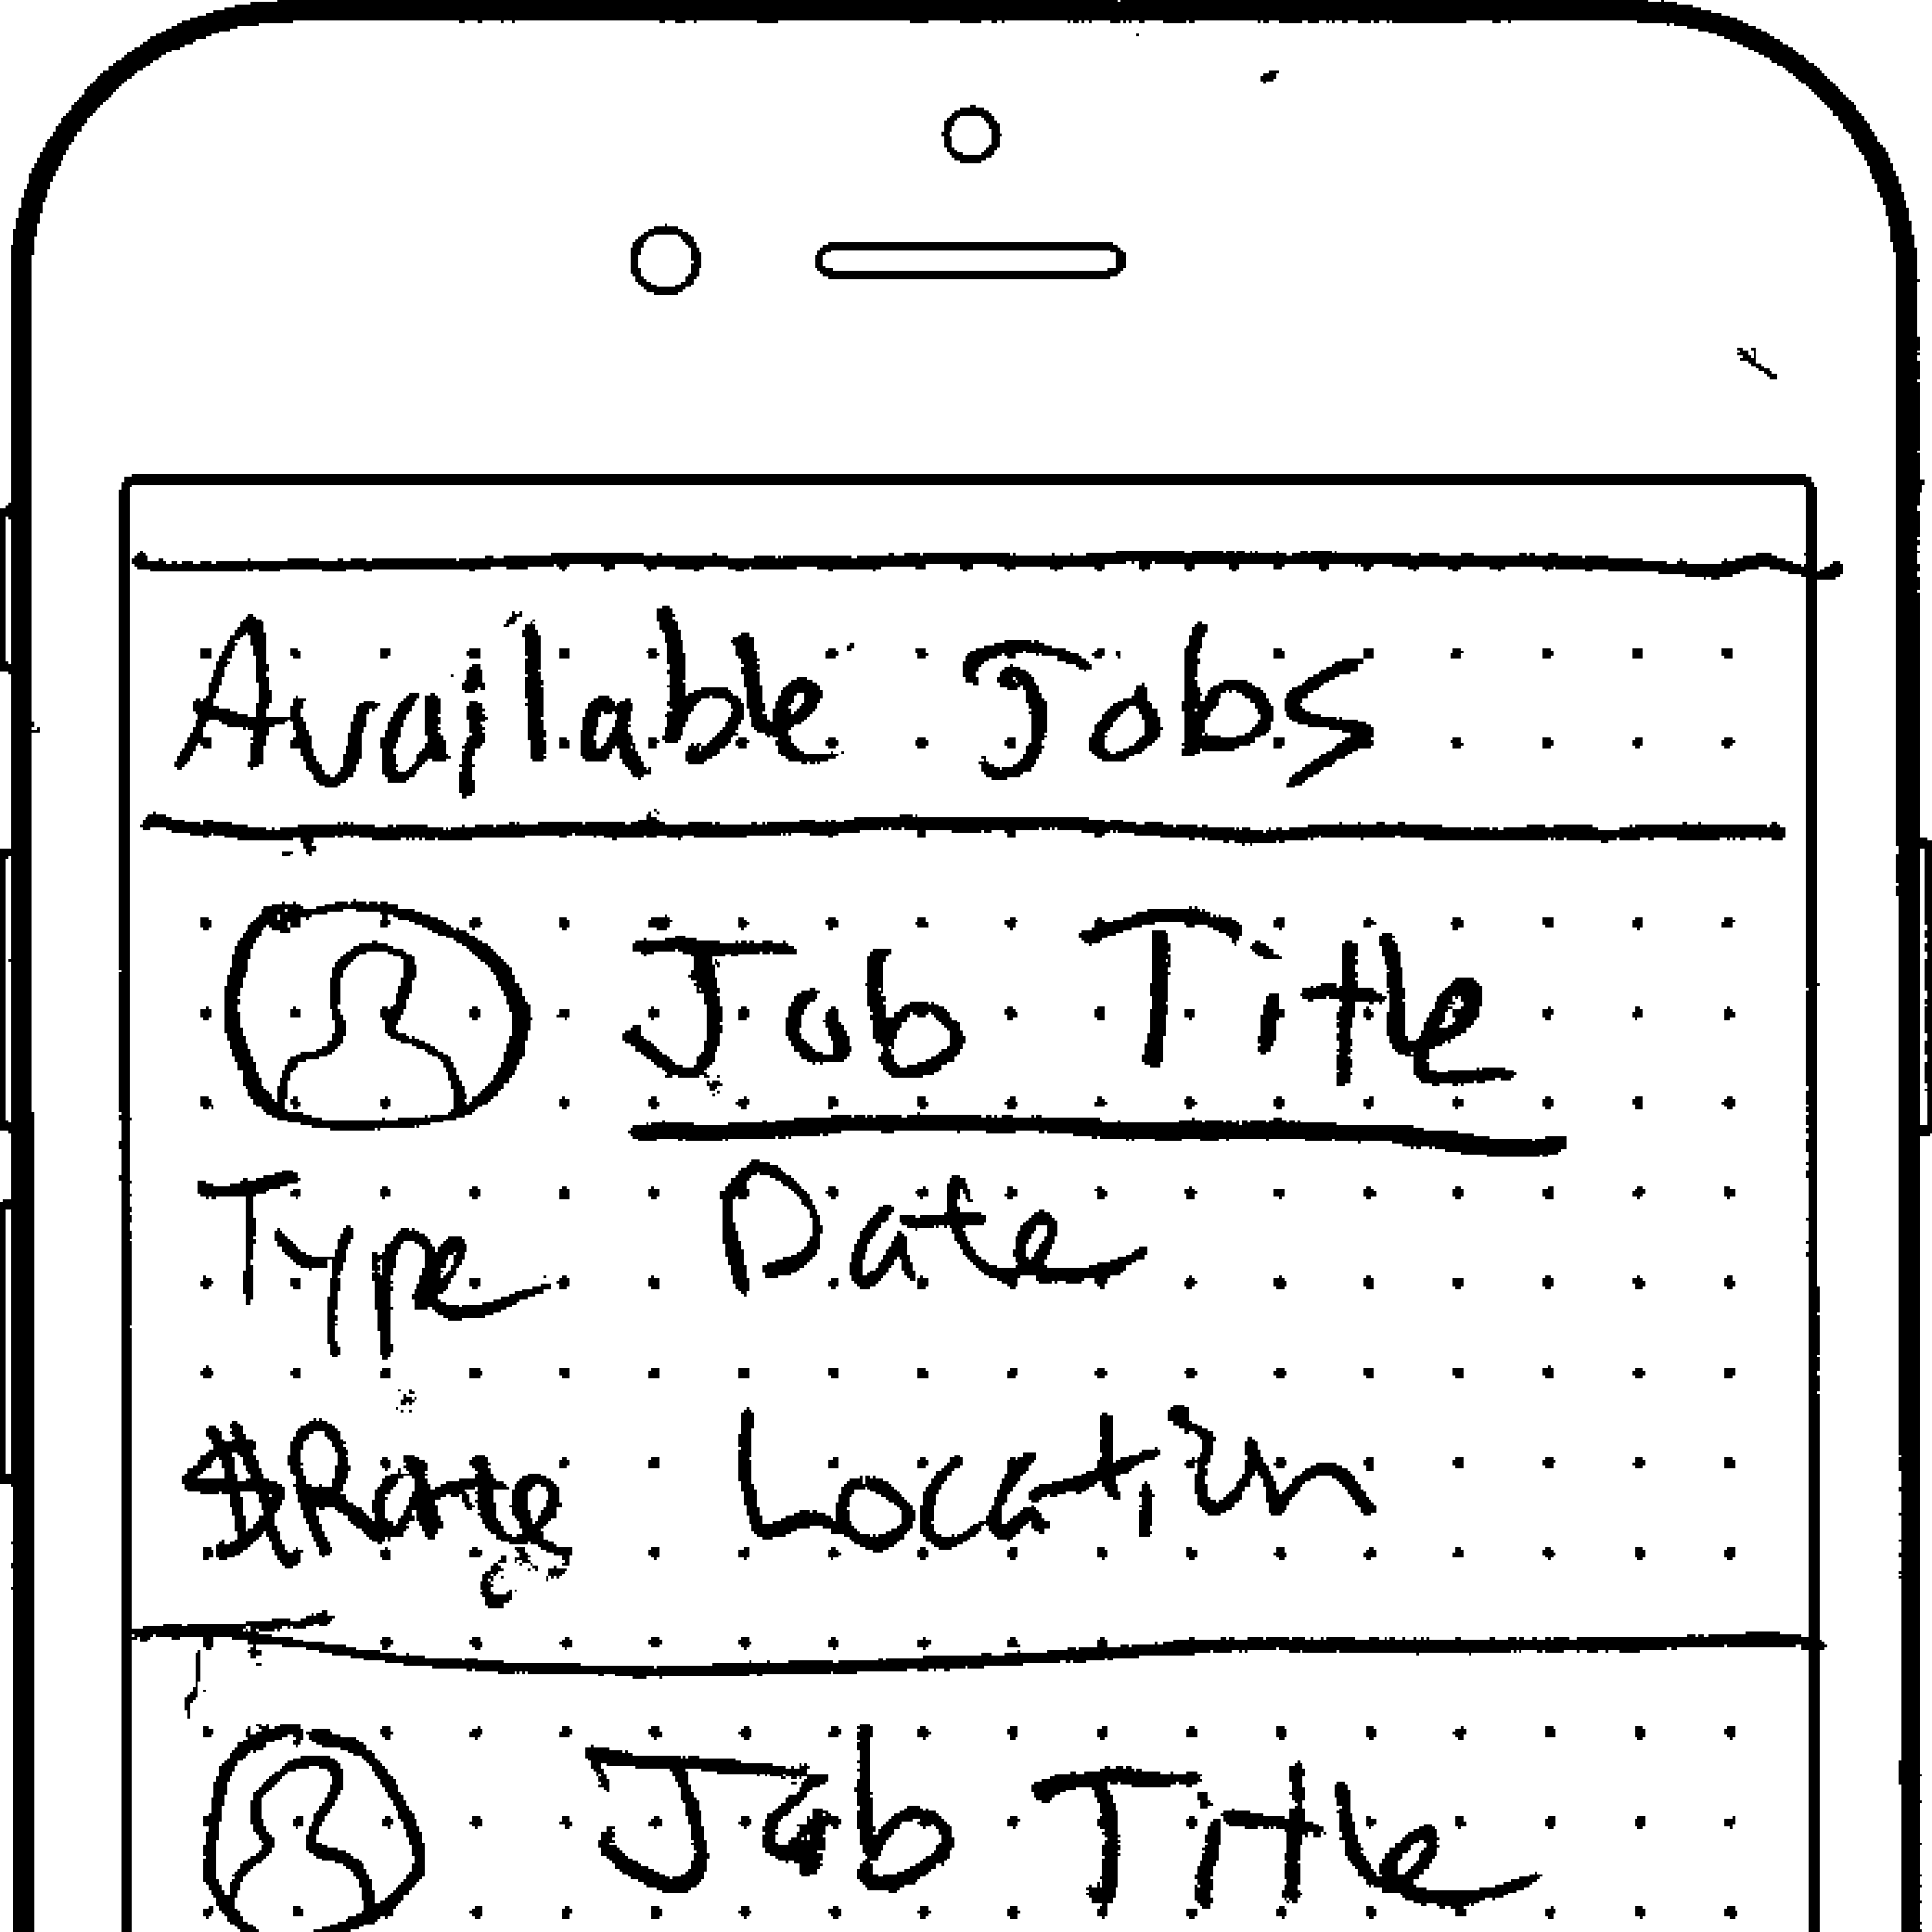 Available Jobs
Job Title
Type Date
$Rate Location
Job Title